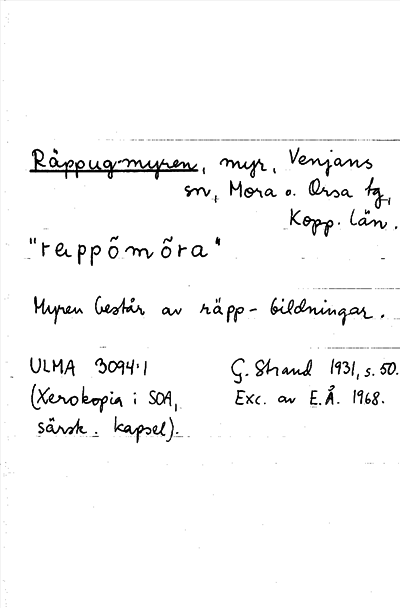 Räppug-myren, myr, Venjans
sn, Mora o. Orsa tg,
Kopp. län.
"rɐppõmõra"
Myren består av räpp-bildningar.
ULMA 3094:1 G. Strand 1931, s. 50.
(Xerokopia i SOA, Exc. av E.Å. 1968.
särsk. kapsel).